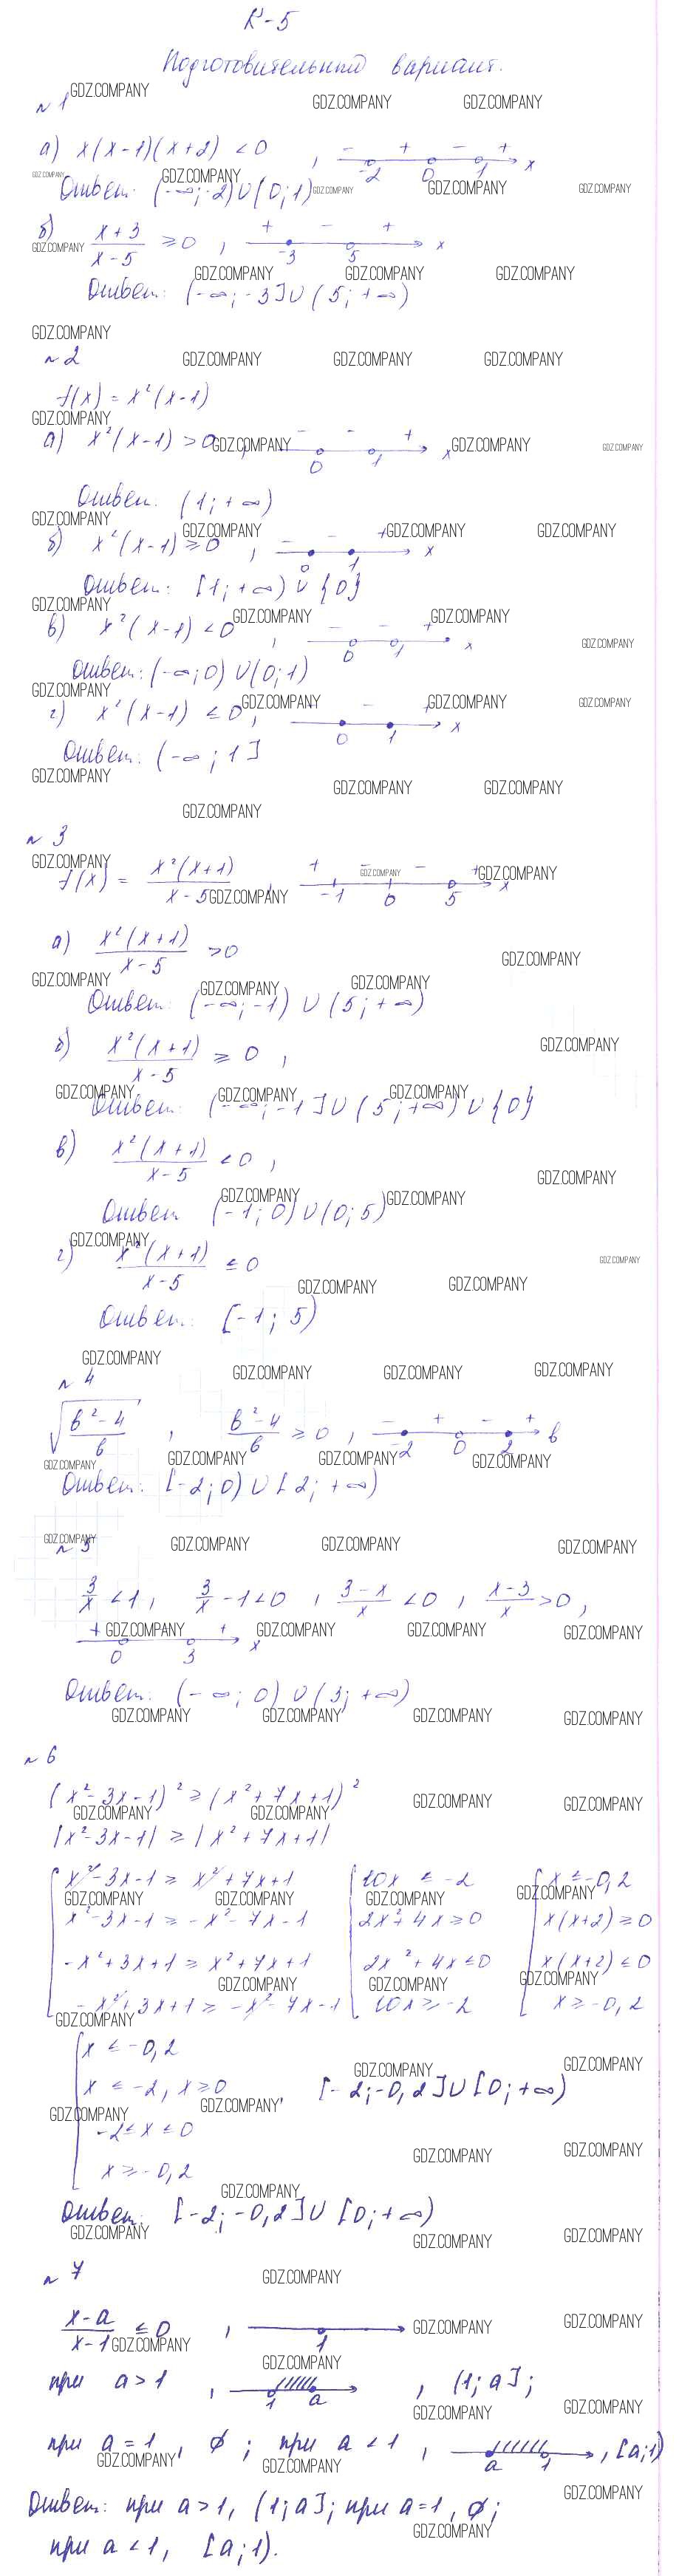 К-5
Подготовительный вариант.
№1
а) x(x-1)(x+2) < 0 , - + - + -2 0 1 x
Ответ: (-∞;-2)∪(0;1)
б) (x+3)/(x-5) ≥ 0 , + - + -3 5 x
Ответ: (-∞;-3]∪(5;+∞)
№2
f(x) = x²(x-1)
а) x²(x-1) > 0, - - + 0 1 x
Ответ: (1;+∞)
б) x²(x-1) ≥ 0 , - - + 0 1 x
Ответ: [1;+∞)∪{0}
в) x²(x-1) < 0 , - - + 0 1 x
Ответ: (-∞;0)∪(0;1)
г) x²(x-1) ≤ 0, - + 0 1 x
Ответ: (-∞;1]
№3
f(x) = x²(x+1)/(x-5) , + - - + -1 0 5 x
а) x²(x+1)/(x-5) > 0
Ответ: (-∞;-1)∪(5;+∞)
б) x²(x+1)/(x-5) ≥ 0 ,
Ответ: (-∞;-1]∪(5;+∞)∪{0}
в) x²(x+1)/(x-5) < 0 ,
Ответ (-1;0)∪(0;5)
г) x²(x+1)/(x-5) ≤ 0
Ответ: [-1;5)
№4
√((b²-4)/b) , (b²-4)/b ≥ 0 , - + - + -2 0 2 b
Ответ: [-2;0)∪[2;+∞)
№5
3/x < 1, 3/x - 1 < 0 , (3-x)/x < 0 , (x-3)/x > 0 ,
+ + 0 3 x
Ответ: (-∞;0)∪(3;+∞)
№6
(x²-3x-1)² ≥ (x²+7x+1)²
|x²-3x-1| ≥ |x²+7x+1|
x²-3x-1 ≥ x²+7x+1 10x ≤ -2 x ≤ -0,2
x²-3x-1 ≥ -x²-7x-1 2x²+4x ≥ 0 x(x+2) ≥ 0
-x²+3x+1 ≥ x²+7x+1 2x²+4x ≤ 0 x(x+2) ≤ 0
-x²+3x+1 ≥ -x²-7x-1 10x ≥ -2 x ≥ -0,2
x ≤ -0,2
x ≤ -2, x ≥ 0 , [-2;-0,2]∪[0;+∞)
-2 ≤ x ≤ 0
x ≥ -0,2
Ответ: [-2;-0,2]∪[0;+∞)
№7
(x-a)/(x-1) ≤ 0 , 1
при a > 1 , 1 a , (1;a];
при a = 1, ∅; при a < 1 , a 1 , [a;1)
Ответ: при a > 1, (1;a]; при a = 1, ∅;
при a < 1, [a;1).